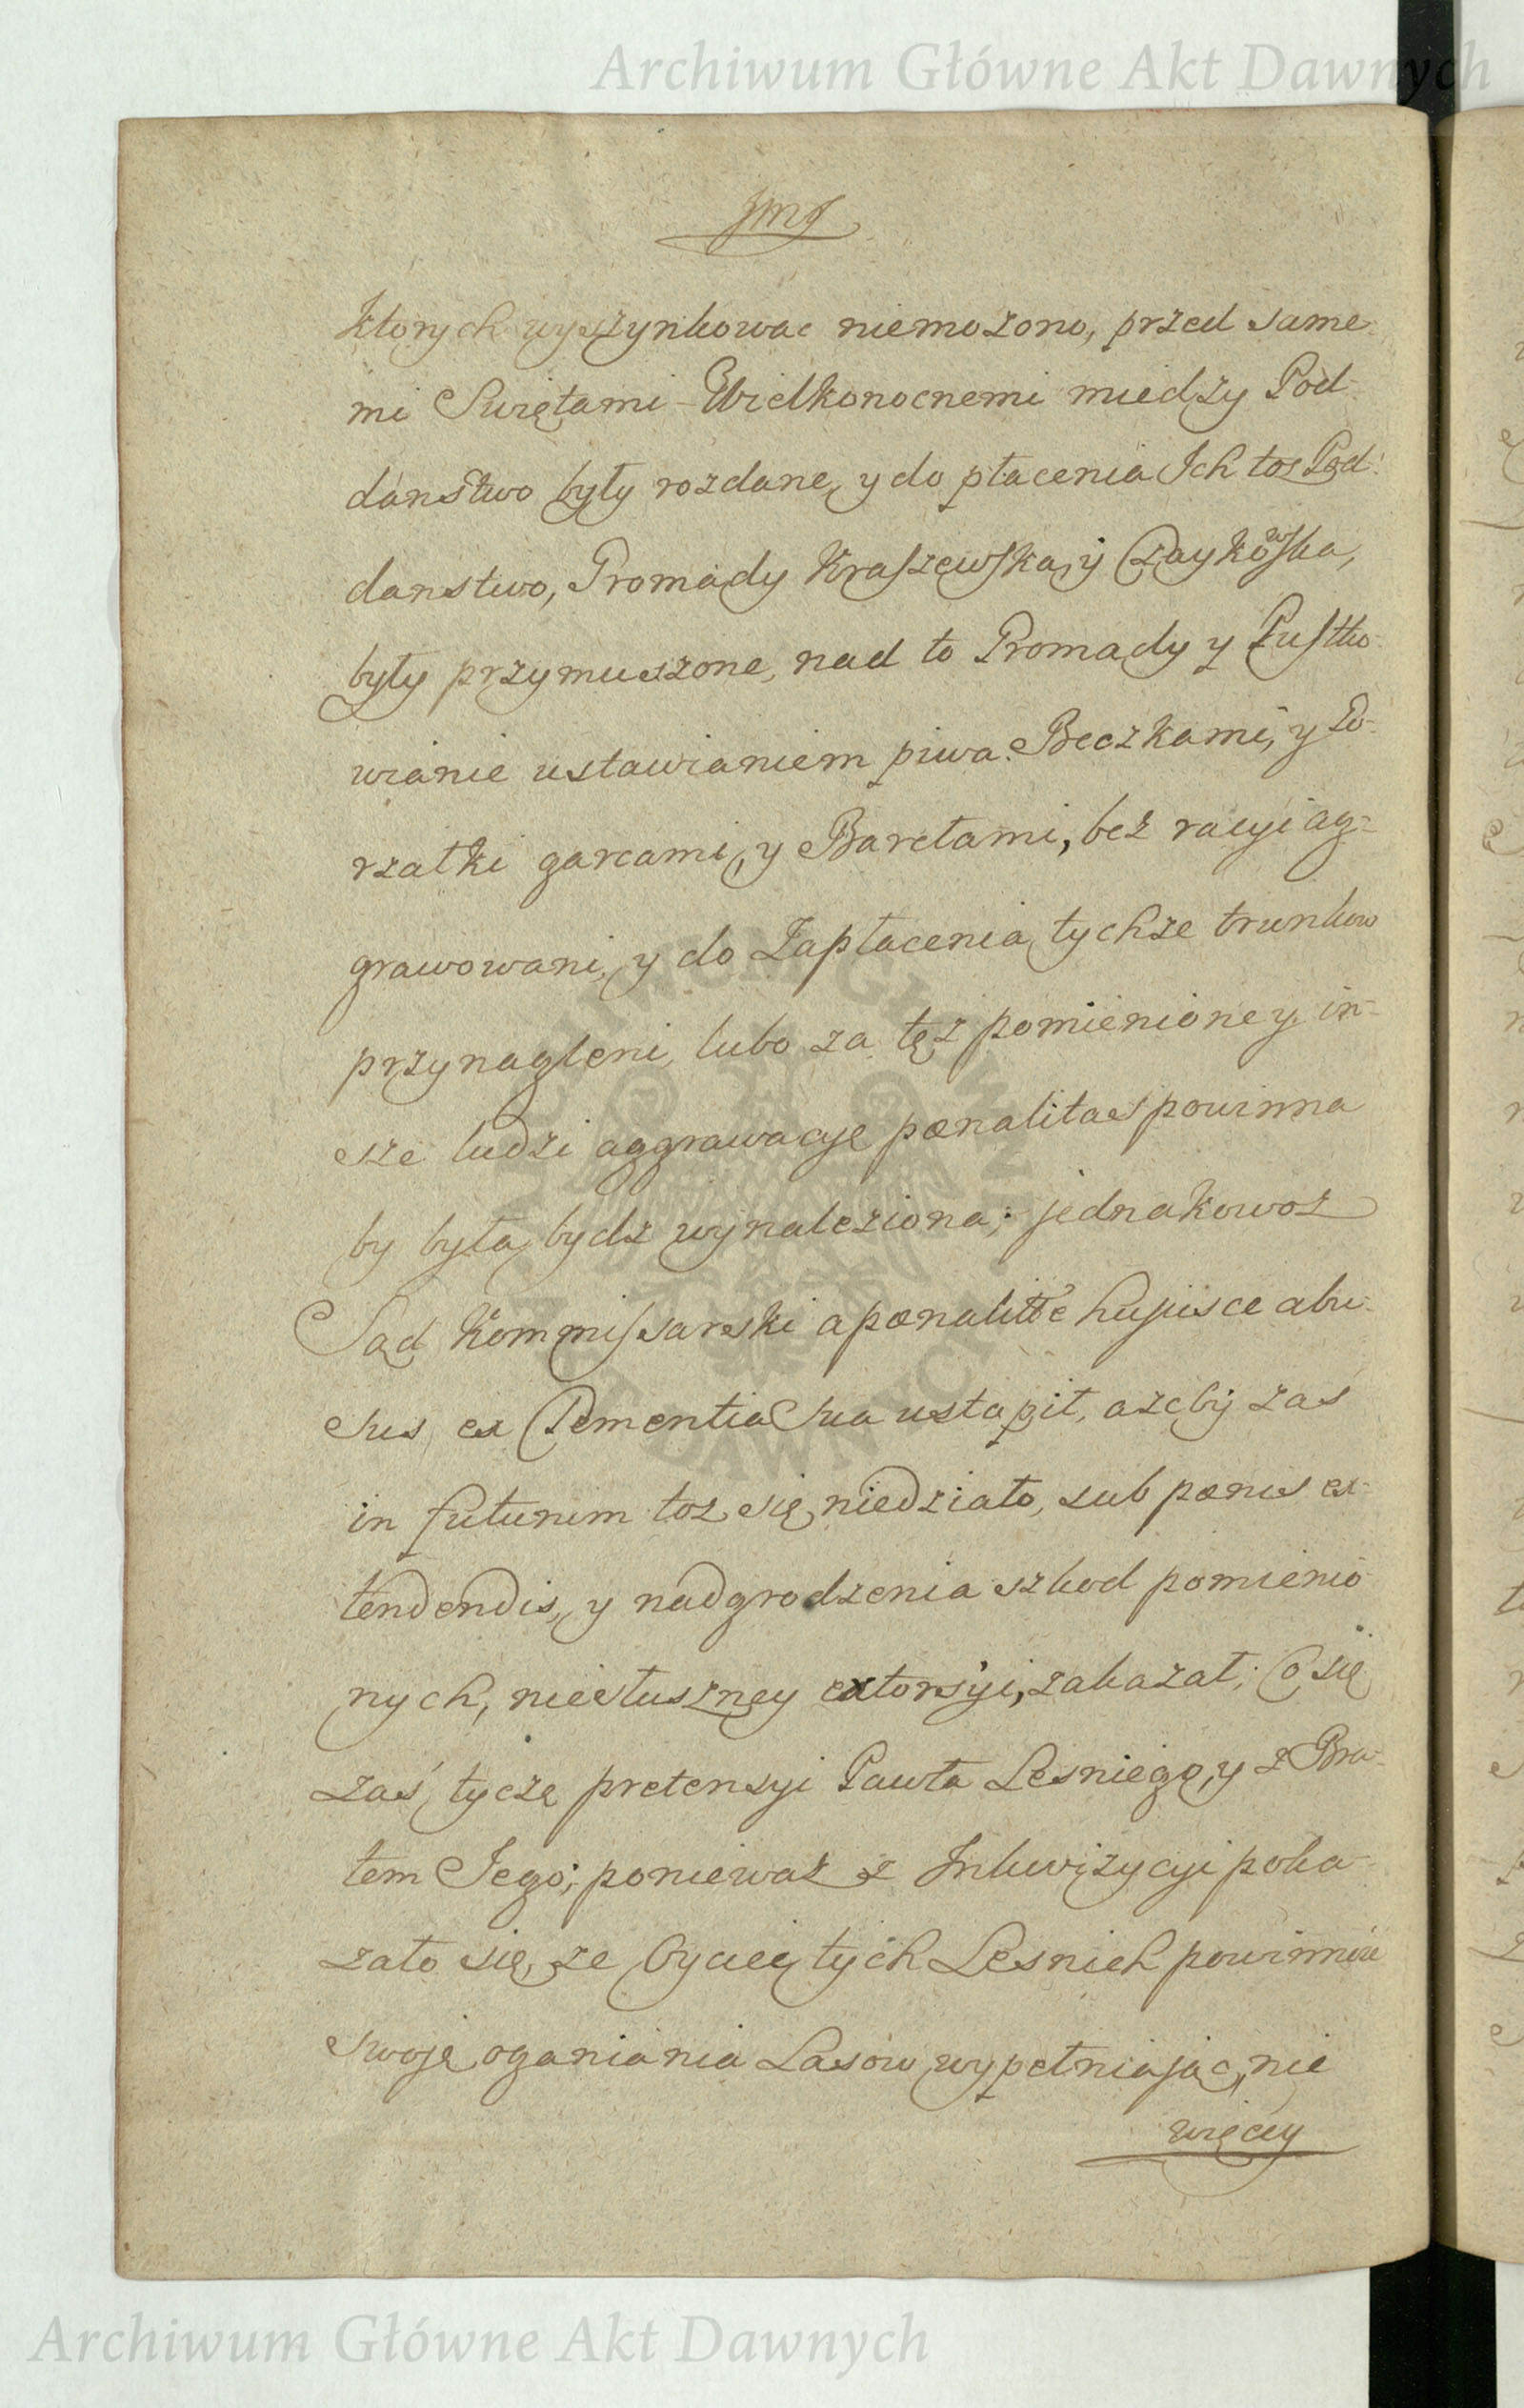 Archiwum Główne Akt Dawnych
JMJ
ktorych wyszynkowac niemozono, przed same-
mi Swiętami Wielkonocnemi miedzy Pod-
danstwo były rozdane, y do płacenia Ich tosz Pod-
danstwo, Gromady Kraszewska, y Czaykowska,
były przymuszone, nad to Gromady y Pustko-
wianie ustawianiem piwa Beczkami, y Go-
rzałki garcami, y Barełami, bez racyi ag-
grawowani, y do Zapłacenia tychze trunkow
przynagleni, lubo za tęż pomienioney in-
sze ludzi aggrawacyę pænalitas powinna
by była bydz wynaleziona; jednakowoz
Sąd Kommissarski a pænalitte hujusce abu-
sus, ex Clementia Sua ustąpił, azeby zas
in futurum toz się niedziało, sub pænis ex-
tendendis, y nadgrodzenia szkod pomienio-
nych, niesłuszney extorsyi, zakazał; Co się
zaś tycze pretensyi Pawła Lesniego, y z Bra-
tem Jego; poniewaz z Inkwizycyi poka-
zało się, ze Oyciec tych Lesnich powinnosc
swoję oganiania Lasow wypełniając, nie
więcey
Archiwum Główne Akt Dawnych